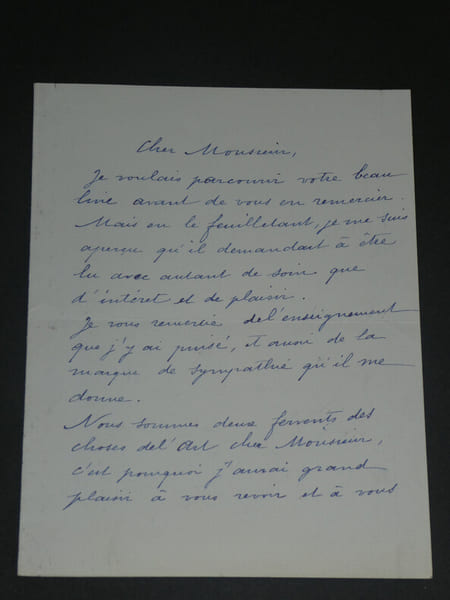 Cher Monsieur,
Je voulais parcourir votre beau
livre avant de vous en remercier.
Mais en le feuilletant, je me suis
aperçu qu'il demandait à être
lu avec autant de soin que
d'intéret et de plaisir.
Je vous remercie del'enseignement
que j'y ai puisé, et aussi de la
marque de sympathie qu'il me
donne.
Nous sommes deux fervents des
choses del'Art cher Monsieur,
c'est pourquoi j'aurai grand
plaisir à vous revoir et à vous